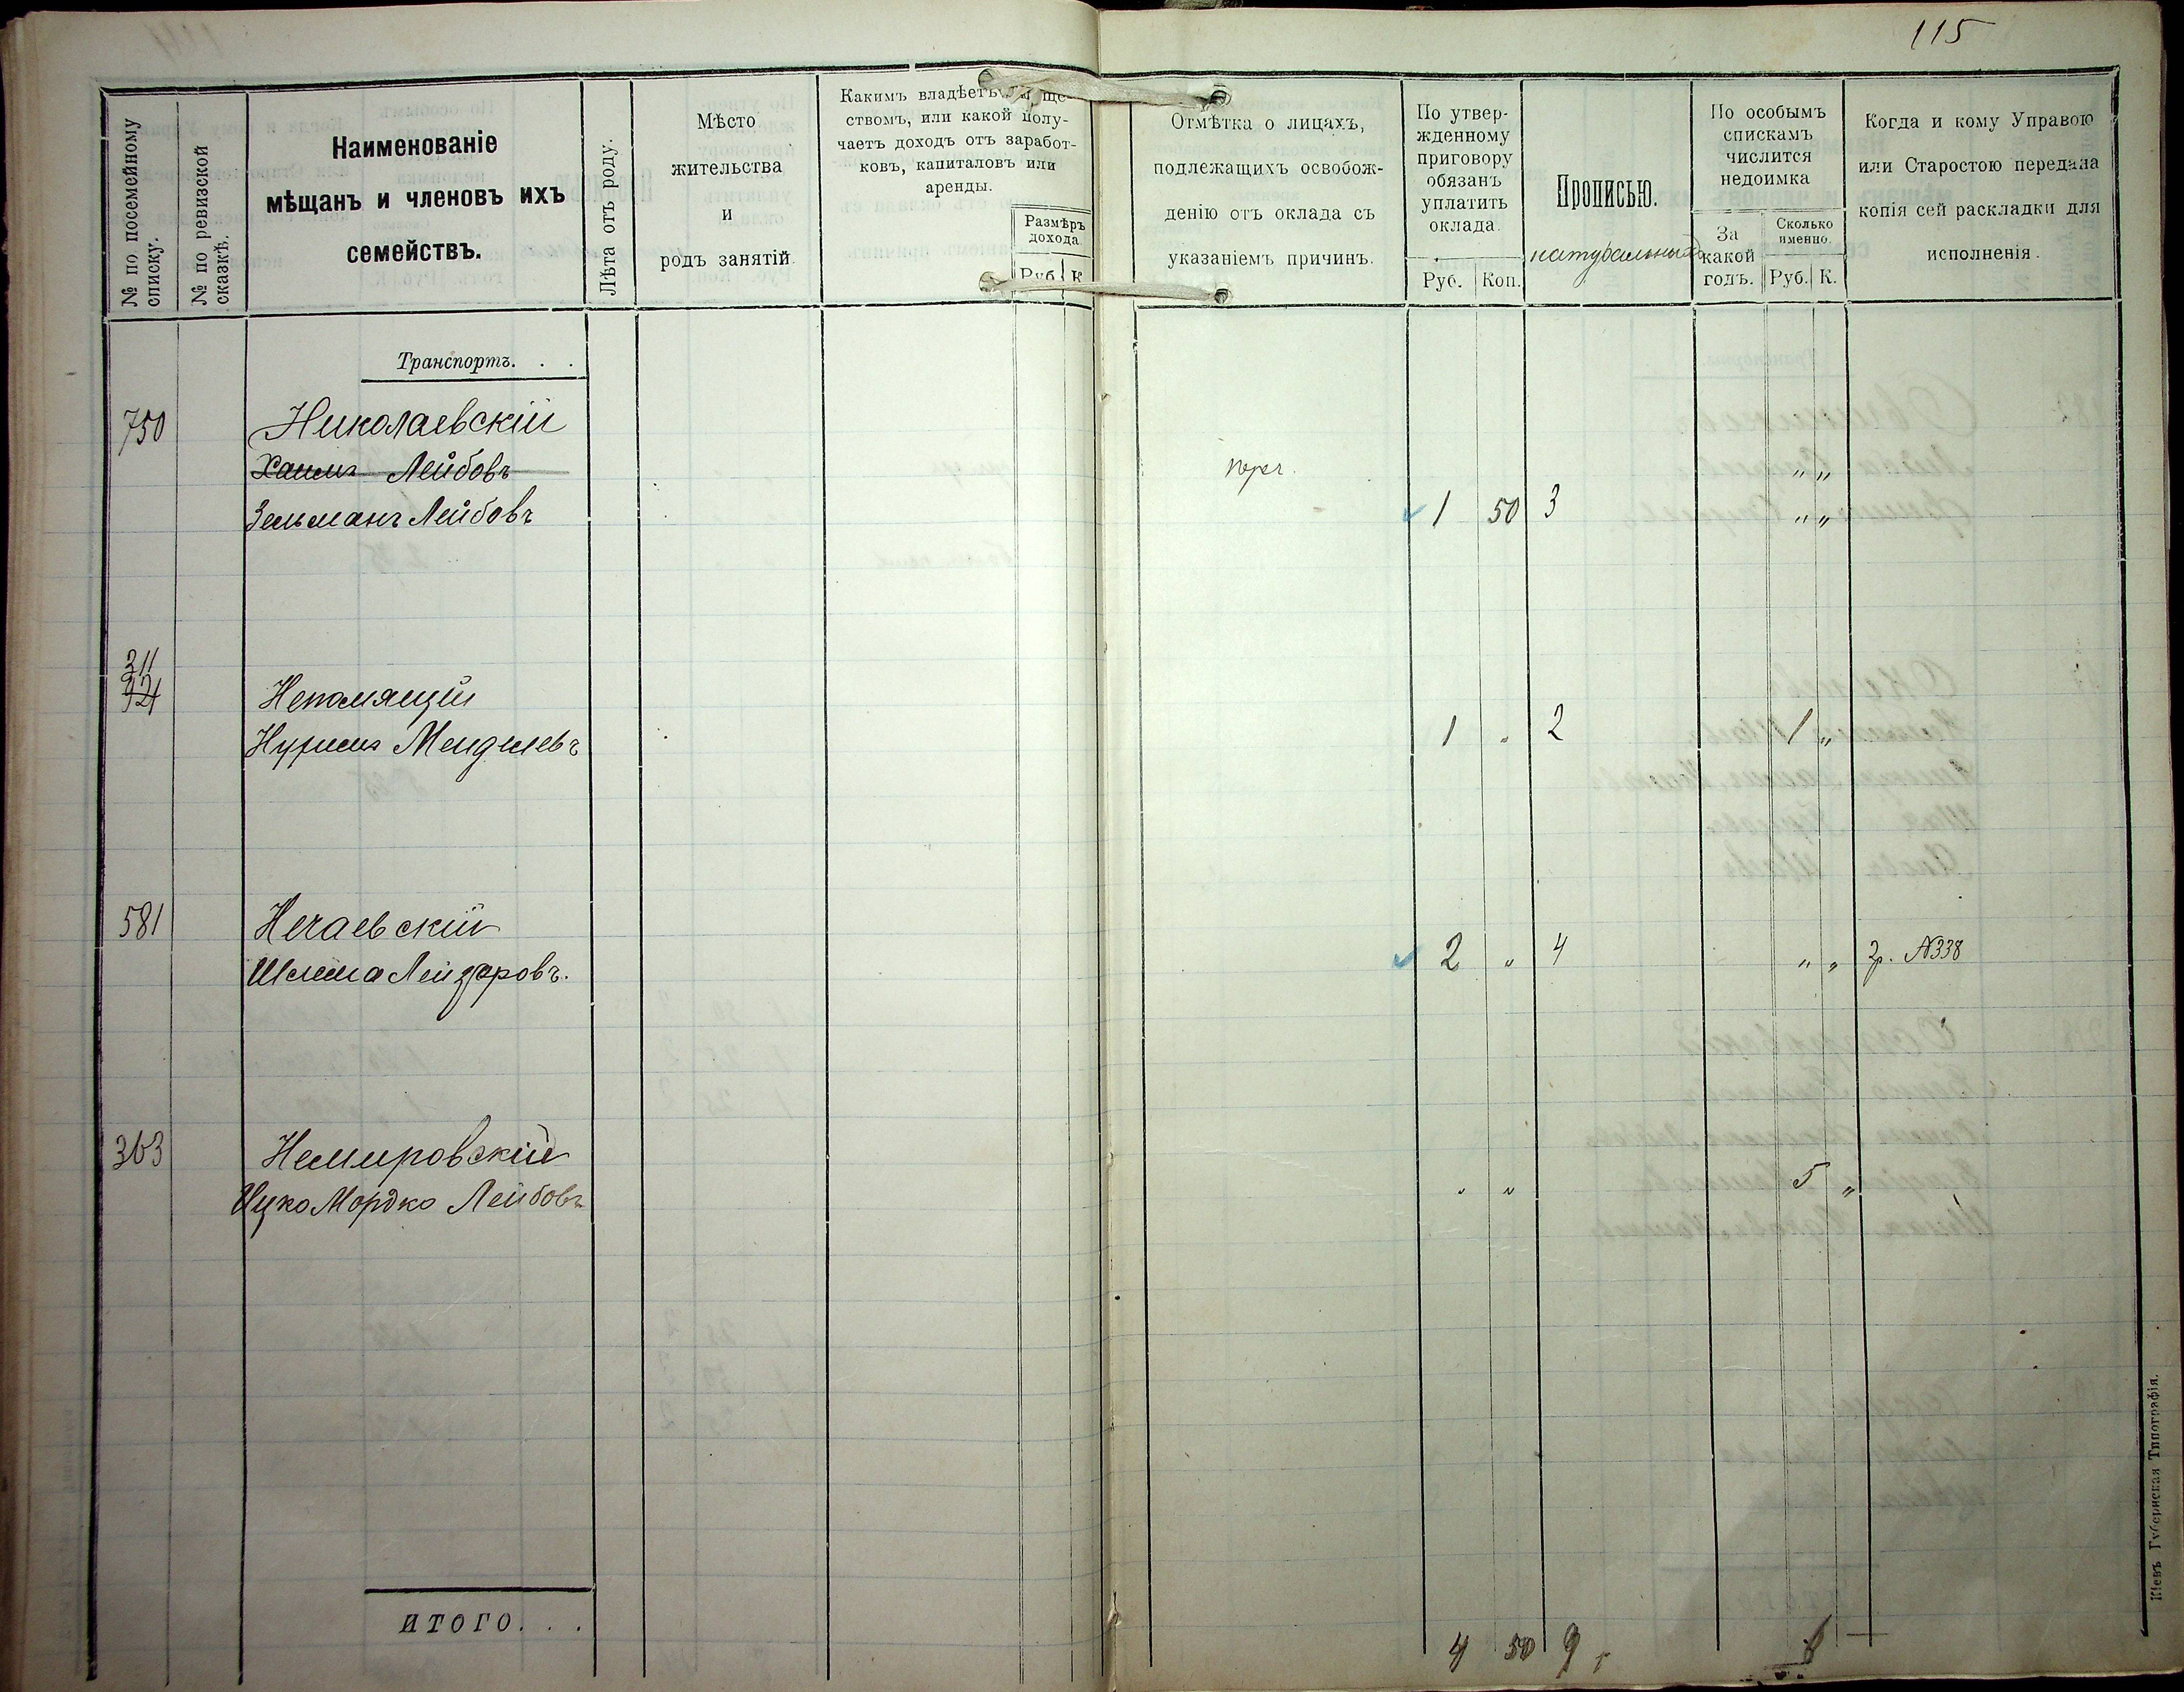 115
№ по посемейному
списку.
№ по ревизской
сказкѣ.
Наименованіе
мѣщанъ и членовъ ихъ
семействъ.
Лѣта отъ роду.
Мѣсто
жительства
и
родъ занятій.
Какимъ владѣетъ
ствомъ, или какой полу-
чаетъ доходъ отъ заработ-
ковъ, капиталовъ или
аренды.
Размѣръ
дохода.
Руб. К
Отмѣтка о лицахъ,
подлежащихъ освобож-
денію отъ оклада съ
указаніемъ причинъ.
По утвер-
жденному
приговору
обязанъ
уплатить
оклада.
Руб. Коп.
Прописью.
По особымъ
спискамъ
числится
недоимка
За
какой
годъ.
Сколько
именно.
Руб. К.
Когда и кому Управою
или Старостою передана
копія сей раскладки для
исполненія.
Транспортъ. . .
750 Николаевскій
Хаимъ Лейбовъ " "
Зельманъ Лейбовъ 1 50 3 " "
211
Непомящій
Мендилевъ 1 " 2 1 "
581 Нечаевскій
Шлема Лейзеровъ. 2 " 4 " " 2р. №338
363 Немировскій
Ицко Мордко Лейбовъ " " 5 "
ИТОГО. . .
4 50 9 6 —
Кіевъ Губернская Типографія.